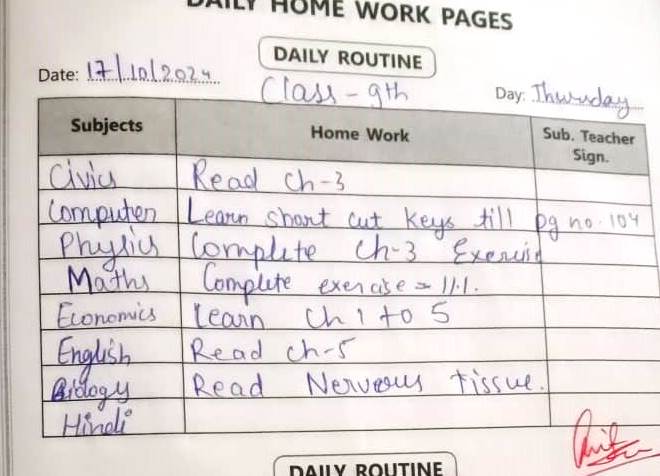 DAILY HOME WORK PAGES
DAILY ROUTINE
Date: 17/10/2024
Class - 9th
Day: Thursday
Subjects Home Work Sub. Teacher Sign.
Civics Read Ch-3
Computer Learn short cut keys till pg no. 104
Physics Complete Ch-3 Exercise
Maths Complete exercise = 11.1.
Economics Learn Ch 1 to 5
English Read ch-5
Biology Read Nerveous tissue.
Hindi
DAILY ROUTINE